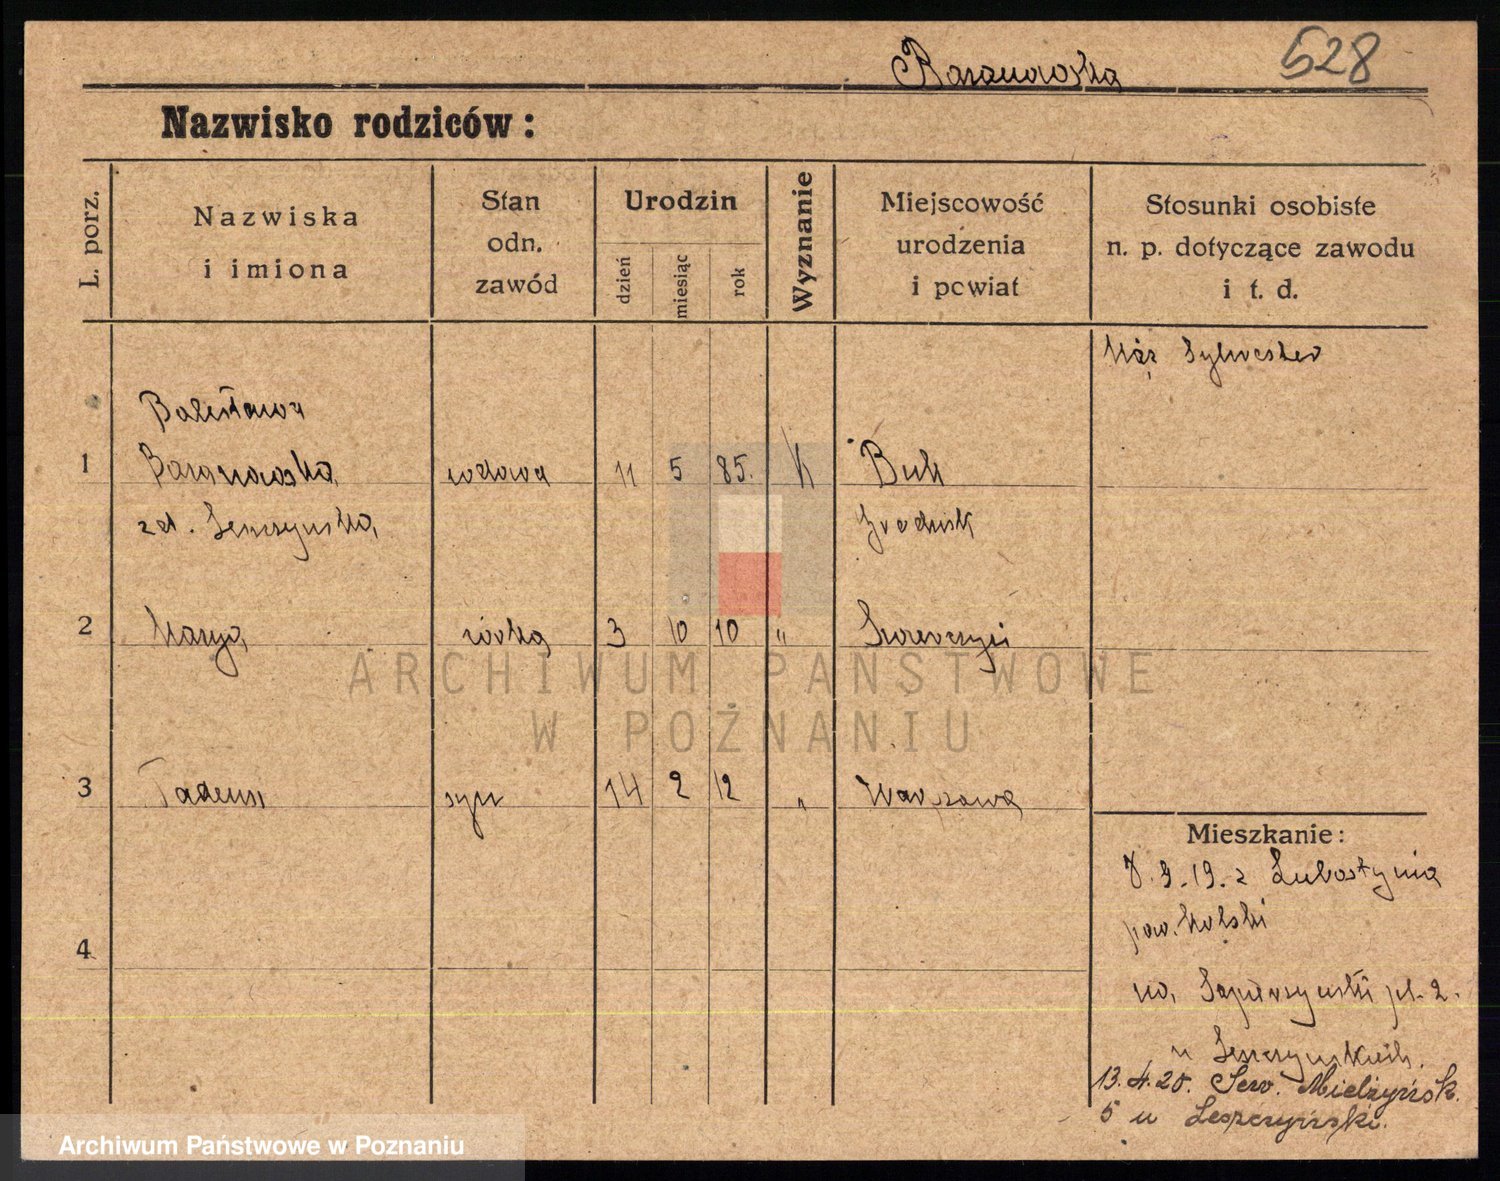 Baranowska
528
Nazwisko rodziców:
L. porz.
Nazwiska
i imiona
Stan
odn.
zawód
Urodzin
dzień
miesiąc
rok
Wyznanie
Miejscowość
urodzenia
i powiat
Stosunki osobiste
n. p. dotyczące zawodu
i t. d.
Mąż Sylwester
Bolesława
1 Baranowska wdowa 11 5 85. K Buk
zd. Leszczyńska Grodzisk
2 Marya córka 3 10 10 "
ARCHIWUM PAŃSTWOWE
W POZNANIU
3 Tadeusz syn 14 2 12 " Warszawa
Mieszkanie:
8.9.19. z Lubostynia
pow. Kolski
4
na Sapieżyński pl. 2.
u Leszczyńskich.
13.4.20. Sew. Mielżyńsk.
5 u Leszczyński.
Archiwum Państwowe w Poznaniu